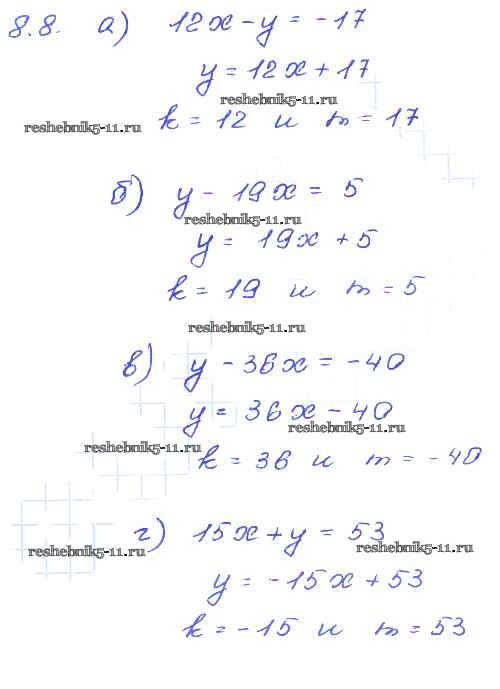 8.8. а) 12x - y = -17
y = 12x + 17
reshebnik5-11.ru
k = 12 и m = 17
reshebnik5-11.ru
б) y - 19x = 5
reshebnik5-11.ru
y = 19x + 5
k = 19 и m = 5
reshebnik5-11.ru
в) y - 36x = -40
y = 36x - 40
reshebnik5-11.ru
reshebnik5-11.ru
k = 36 и m = -40
г) 15x + y = 53
reshebnik5-11.ru reshebnik5-11.ru
y = -15x + 53
k = -15 и m = 53